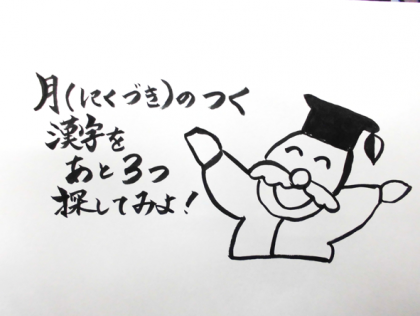 月(にくづき)のつく
漢字を
あと3つ
探してみよ!